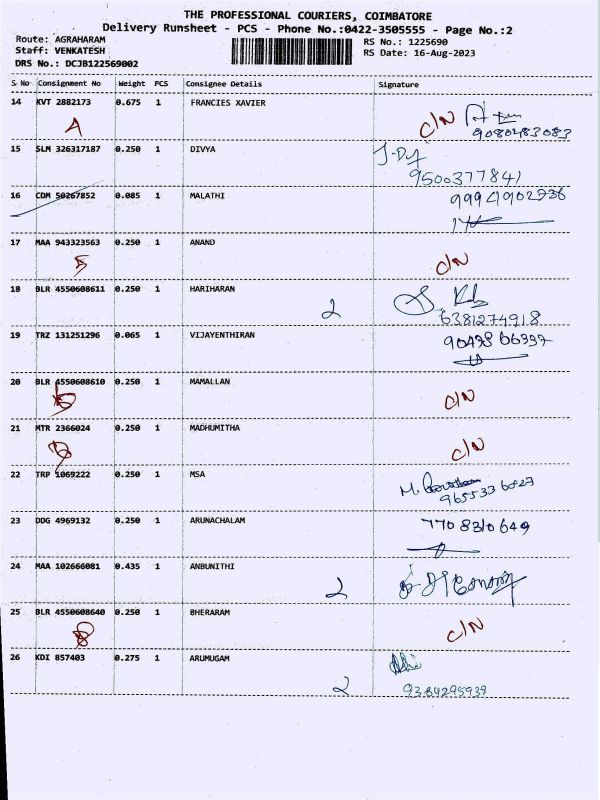 THE PROFESSIONAL COURIERS, COIMBATORE
Delivery Runsheet - PCS - Phone No.:0422-3505555 - Page No.:2
Route: AGRAHARAM
RS No.: 1225690
Staff: VENKATESH
RS Date: 16-Aug-2023
DRS No.: DCJB122569002
S No Consignment No Weight PCS Consignee Details Signature
14 KVT 2882173 0.675 1 FRANCIES XAVIER C/N
A 9080483083
15 SLM 326317187 0.250 1 DIVYA
9500377841
16 CDM 50267852 0.085 1 MALATHI 9994902736
17 MAA 943323563 0.250 1 ANAND
5 C/N
18 BLR 4550608611 0.250 1 HARIHARAN
2 6381274918
19 TRZ 131251296 0.065 1 VIJAYENTHIRAN
20 BLR 4550608610 0.250 1 MAMALLAN
C/N
21 MTR 2366024 0.250 1 MADHUMITHA
C/N
22 TRP 1069222 0.250 1 MSA
23 DDG 4969132 0.250 1 ARUNACHALAM 7708310649
24 MAA 102666081 0.435 1 ANBUNITHI
2
25 BLR 4550608640 0.250 1 BHERARAM
C/N
26 KDI 857403 0.275 1 ARUMUGAM
2 9384295939